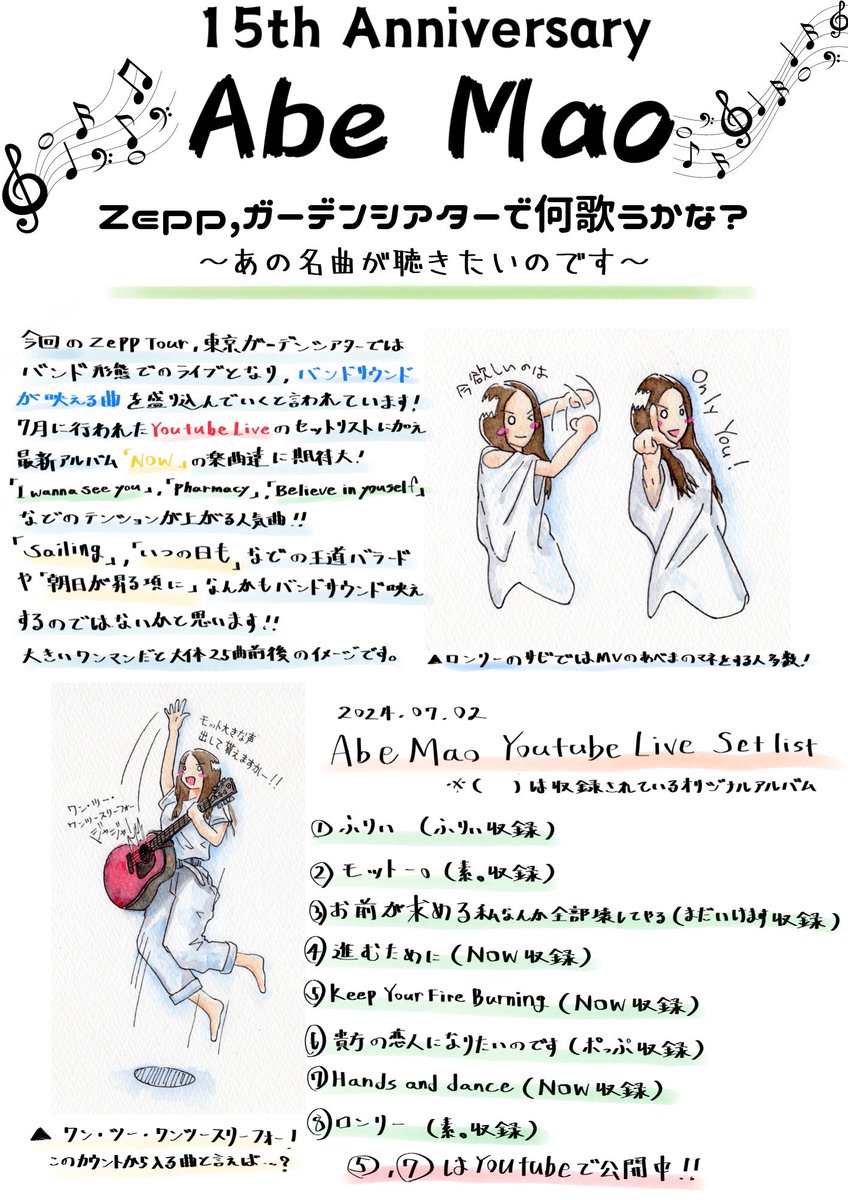 15th Anniversary
Abe Mao
Zepp,ガーデンシアターで何歌うかな?
～あの名曲が聴きたいのです～
今回のZepp Tour,東京ガーデンシアターでは
バンド形態でのライブとなり,バンドサウンド
が映える曲を盛り込んでいくと言われています!
7月に行われたYoutube Liveのセットリストに加え
最新アルバム「NOW」の楽曲達に期待大!
「I wanna see you」,「pharmacy」,「Believe in youself」
などのテンションが上がる人気曲!!
「Sailing」,「いつの日も」などの王道バラード
や「朝日が昇る項に」なんかもバンドサウンド映え
するのではないかと思います!!
大きいワンマンだと大体25曲前後のイメージです。
今欲しいのは
Only You!
▲ロンリーのサビではMVのあべまのマネをする人多数!
モット大きな声
出して貰えますかー!!
ワン・ツー・
ワンツースリーフォー
ジャジャーン
▲ ワン・ツー・ワンツースリーフォー!
このカウントから入る曲と言えば…?
2024.07.02
Abe Mao Youtube Live Setlist
※( )は収録されているオリジナルアルバム
①ふりぃ (ふりぃ収録)
②モットー。(素。収録)
③お前が求める私なんか全部壊してやる(まだいけます収録)
④進むために(NOW収録)
⑤Keep Your Fire Burning (NOW収録)
⑥貴方の恋人になりたいのです(ポっぷ収録)
⑦Hands and dance (NOW収録)
⑧ロンリー (素。収録)
⑤,⑦はYoutubeで公開中!!